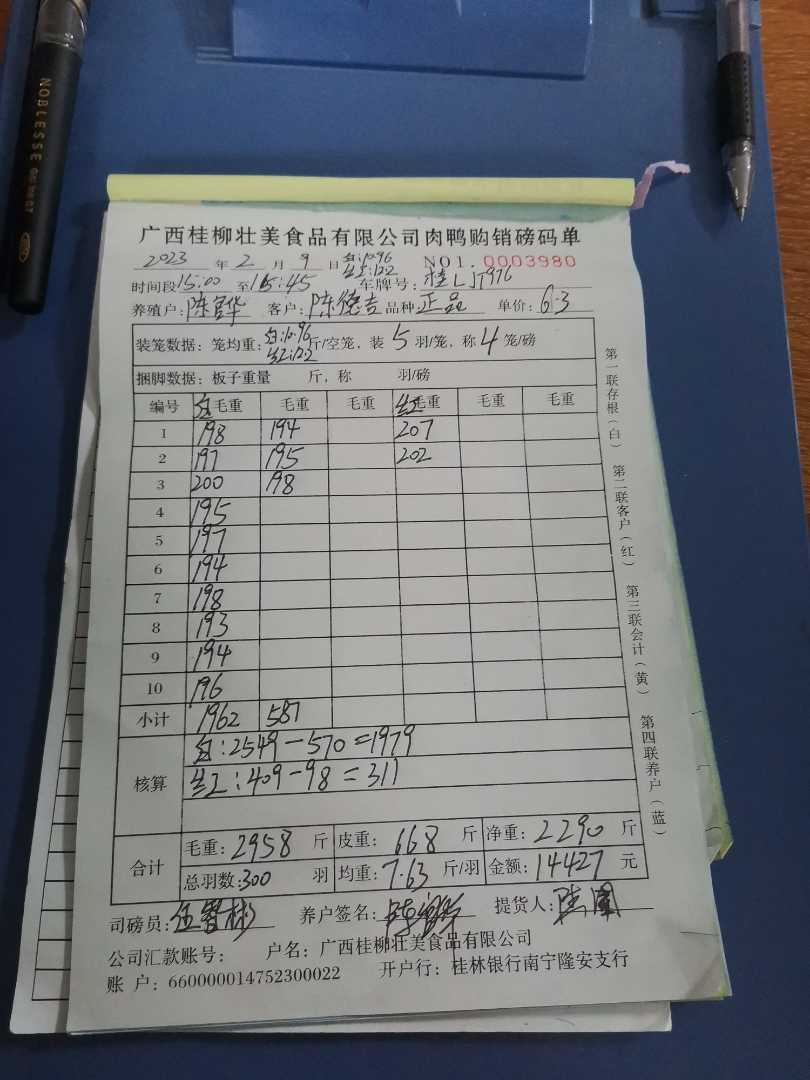 NOBLESSE
广西桂柳壮美食品有限公司肉鸭购销磅码单
2023 年 2 月 9 日 白:10.96 红:12.2 NO1. 0003980
时间段 15:00 至 15:45 车牌号: 桂LJT976
养殖户: 陈 华 客户: 陈德吉 品种 正品 单价: 6.3
装笼数据: 笼均重: 白:10.96 红:12.2 斤/空笼, 装 5 羽/笼, 称 4 笼/磅
捆脚数据: 板子重量 斤, 称 羽/磅
编号 白毛重 毛重 毛重 红毛重 毛重 毛重
1 198 194 207
2 197 195 202
3 200 198
4 195
5 197
6 194
7 198
8 193
9 194
10 196
小计 1962 587
核算
白:2549-570=1979
红:409-98=311
合计
毛重: 2958 斤 皮重: 668 斤 净重: 2290 斤
总羽数: 300 羽 均重: 7.63 斤/羽 金额: 14427 元
司磅员: 伍智彬 养户签名: 提货人:
公司汇款账号: 户名: 广西桂柳壮美食品有限公司
账 户: 660000014752300022 开户行: 桂林银行南宁隆安支行
第一联存根(白) 第二联客户(红) 第三联会计(黄) 第四联养户(蓝)